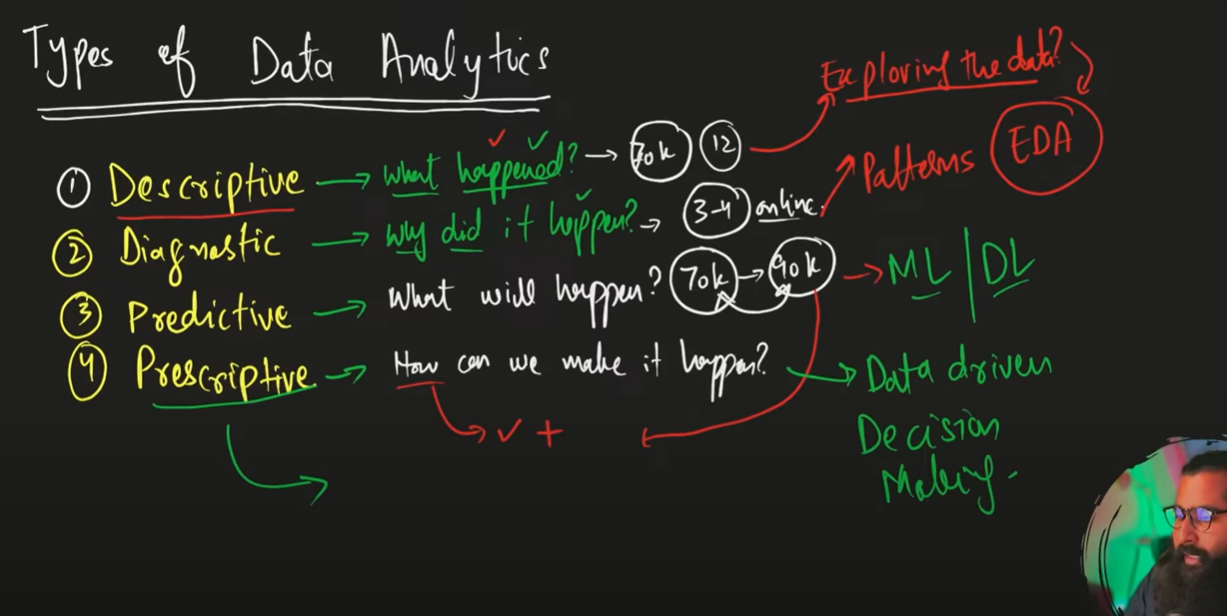 Types of Data Analytics
Exploring the data?
① Descriptive → what happened? → 70k 12
Patterns EDA
② Diagnostic → why did it happen? → 3-4 online.
③ Predictive → What will happen? 70k → 90k → ML | DL
④ Prescriptive → How can we make it happen? → Data driven
✓ +
Decision
Making